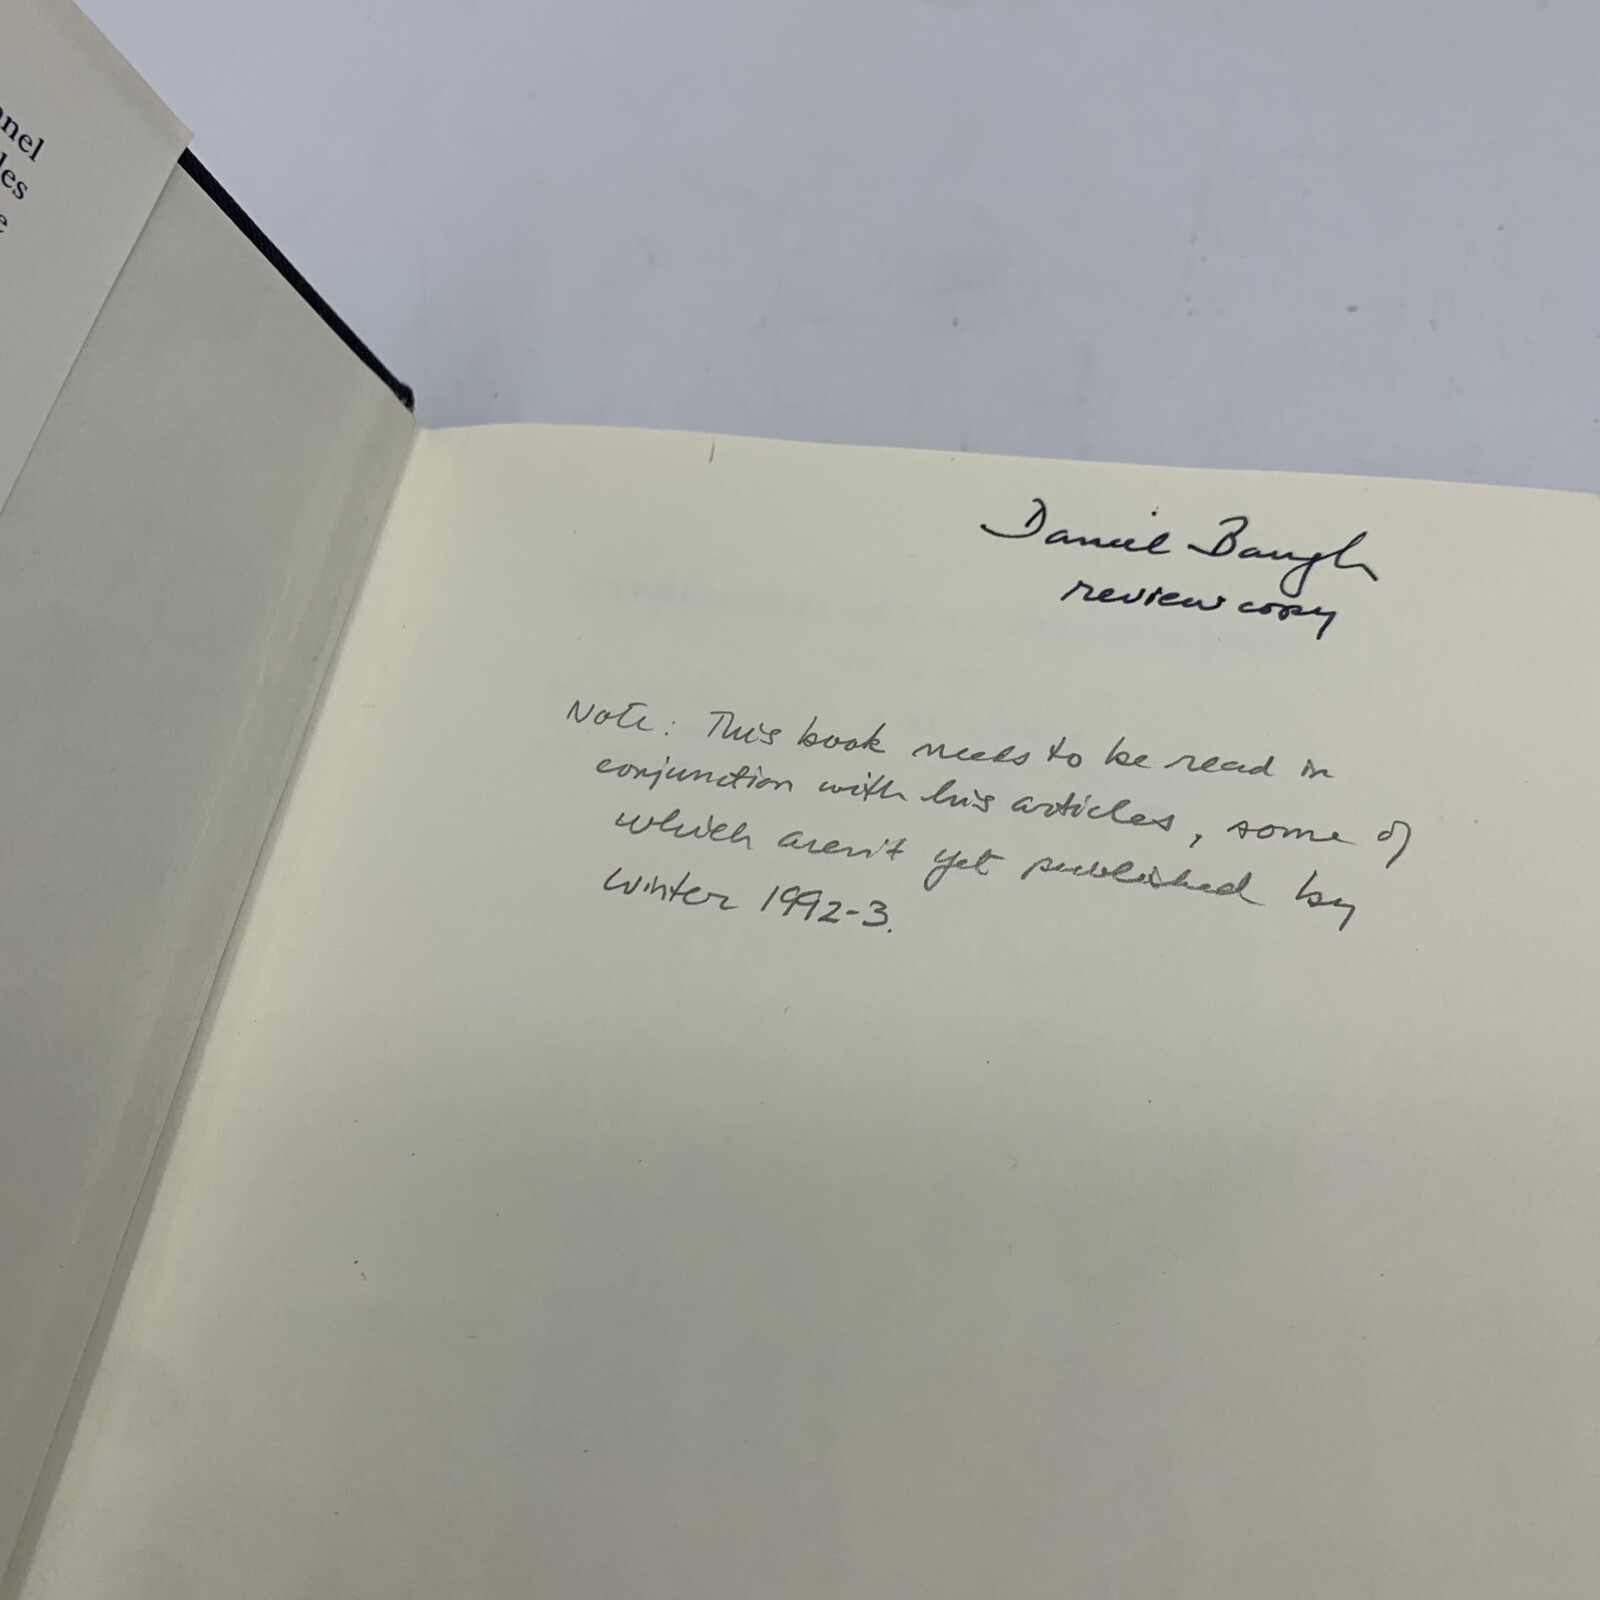 nnel
les
e
Daniel Baugh
review copy
Note: This book needs to be read in
conjunction with his articles, some of
which aren't yet published by
winter 1992-3.